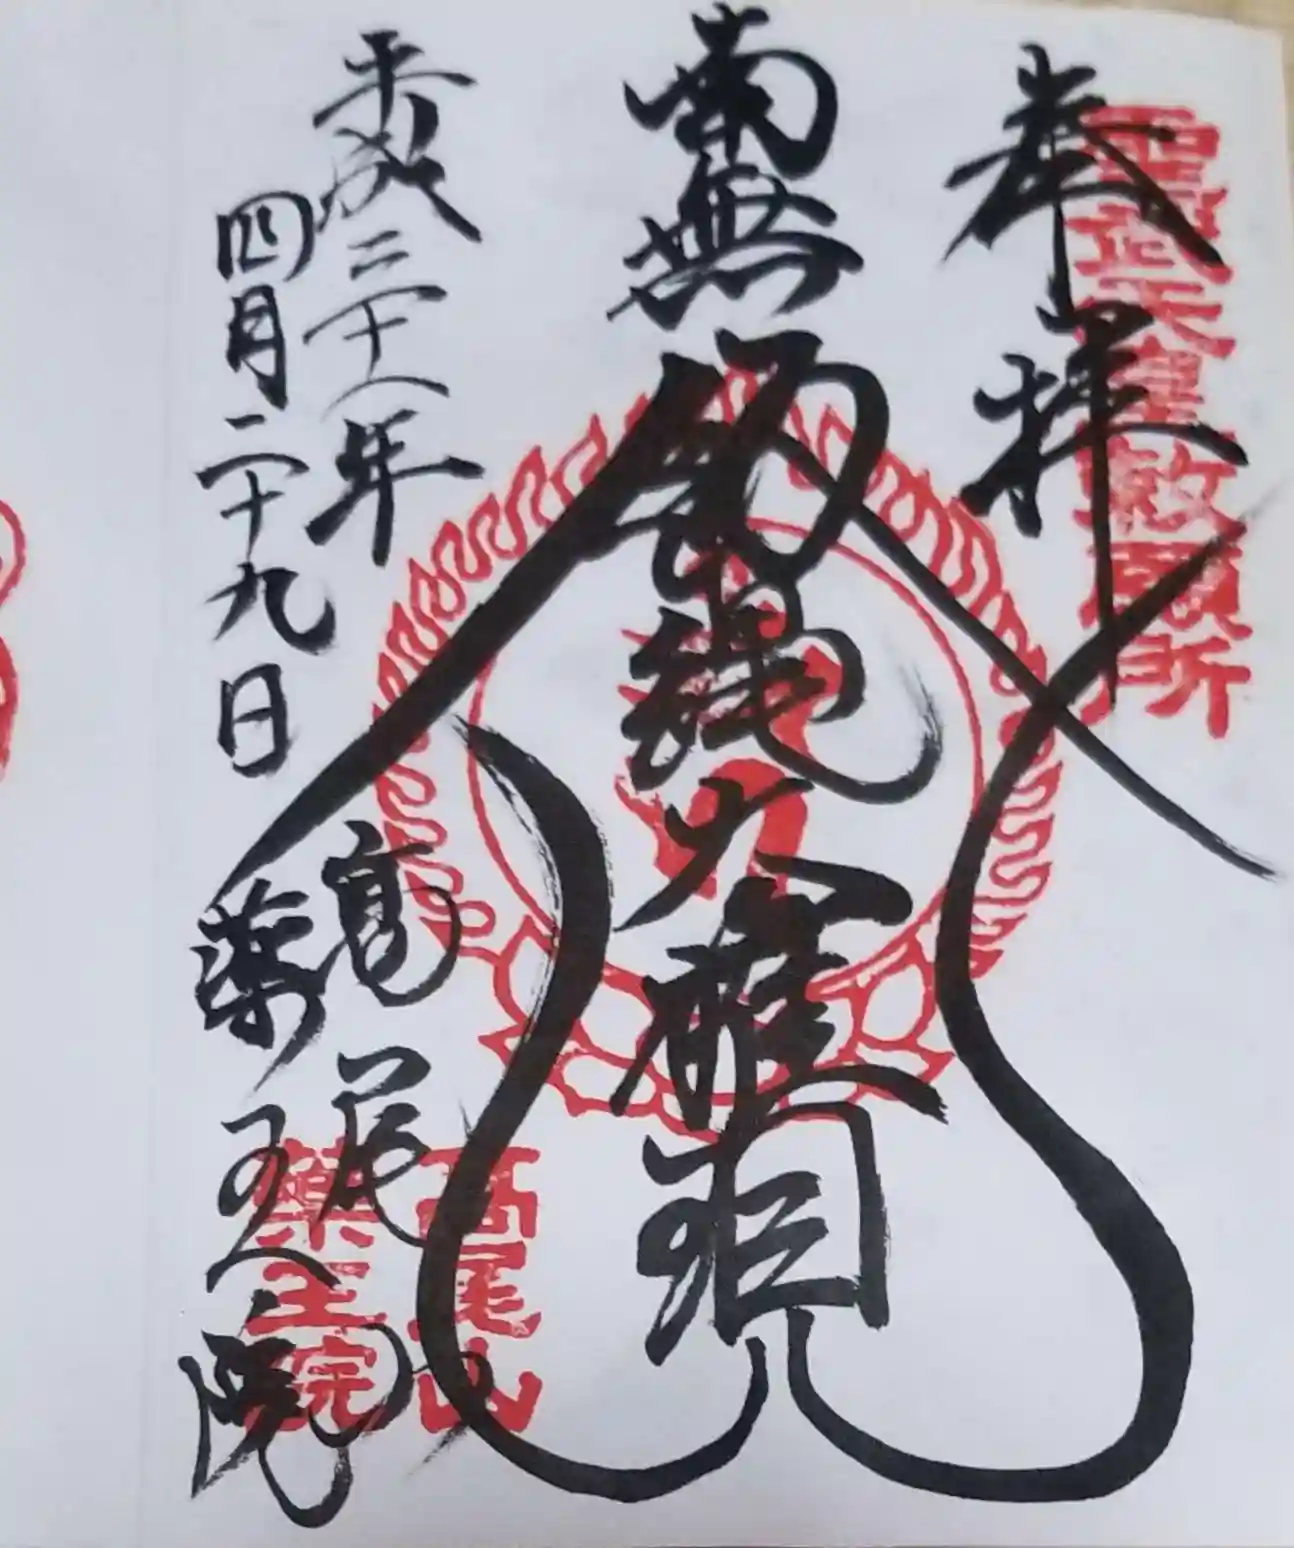 奉拝
聖武天皇敕願所
南無飯縄大権現
平成三十一年
四月二十九日
高尾山
薬王院
高尾山
薬王院